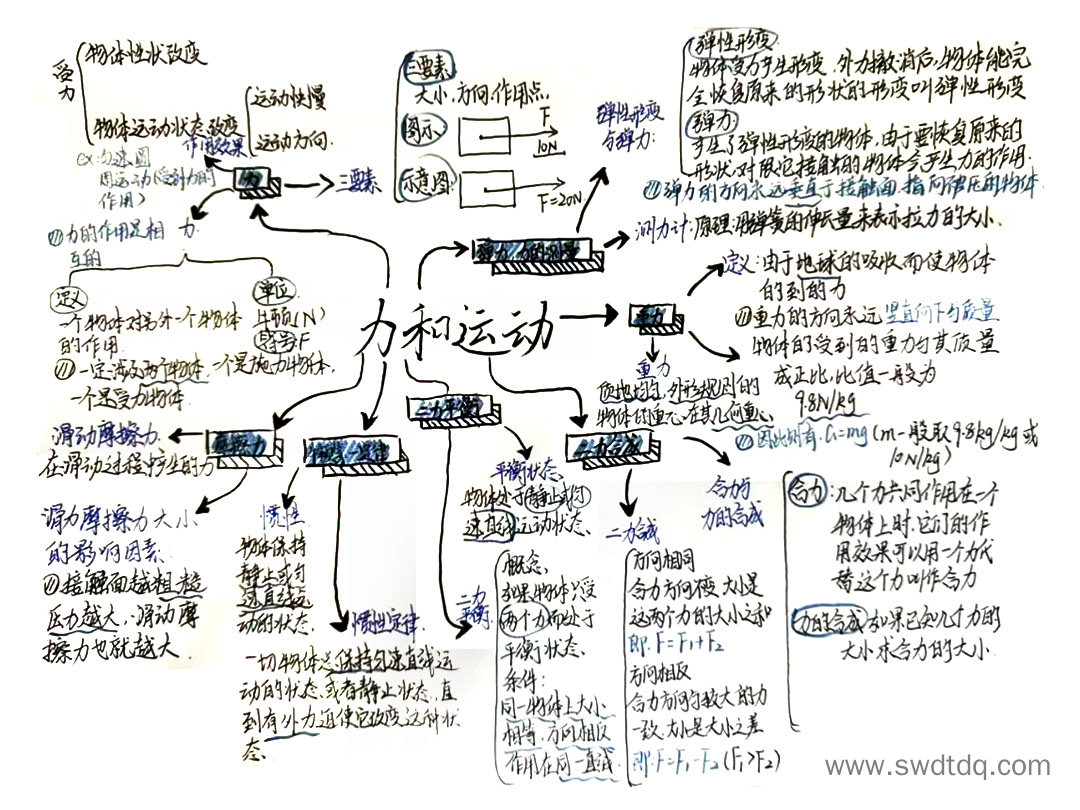 受力
物体性状改变
物体运动状态改变
运动快慢
运动方向
作用效果
ex:匀速圆
周运动(受到力的
作用)
力
三要素
(1)力的作用是相
互的
力
定义
一个物体对另外一个物体
的作用
(1)一定涉及两个物体,一个是施力物体,
一个是受力物体
单位
牛顿(N)
符号F
三要素
大小,方向,作用点,
图示
F
10N
示意图:
F=20N
弹性形变
与弹力:
弹性形变
物体受力产生形变,外力撤消后,物体能完
全恢复原来的形状的形变叫弹性形变
弹力:
产生了弹性形变的物体,由于要恢复原来的
形状,对跟它接触的物体会产生力的作用.
(1)弹力的方向永远垂直于接触面,指向使压的物体
弹力 力的测量
测力计:原理:用弹簧的伸长量来表示拉力的大小.
力和运动
重力
定义:由于地球的吸收而使物体
的到的力
(1)重力的方向永远竖直向下与质量
物体的受到的重力与其质量
成正比,比值一般为
9.8N/kg
(1)因此则有:G=mg(m一般取9.8kg/kg或
10N/kg)
重力
质地均匀,外形规则的
物体的重心,在其几何重心
摩擦力
滑动摩擦力
在滑动过程中产生的力
滑力摩擦力大小
的影响因素:
(1)接触面越粗糙
压力越大,滑动摩
擦力也就越大
惯性
物体保持
静止或匀
速直线运
动的状态.
惯性定律
一切物体总保持匀速直线运
动的状态,或者静止状态,直
到有外力迫使它改变这种状
态.
二力平衡
平衡状态,
物体处于静止或匀
速直线运动状态,
二力
平衡:
概念,
如果物体只受
两个力而处于
平衡状态,
条件:
同一物体上大小
相等,方向相反
作用在同一直线
二力合成
二力合成
方向相同
合力方向不变,大小是
这两个力的大小之和
即:F=F₁+F₂
方向相反
合力方向与较大的力
一致,大小是大小之差
即:F=F₁-F₂(F₁>F₂)
合力与
力的合成
合力:几个力共同作用在一个
物体上时,它们的作
用效果可以用一个力代
替这个力叫作合力
力的合成:如果已知几个力的
大小求合力的大小
www.swdtdq.com